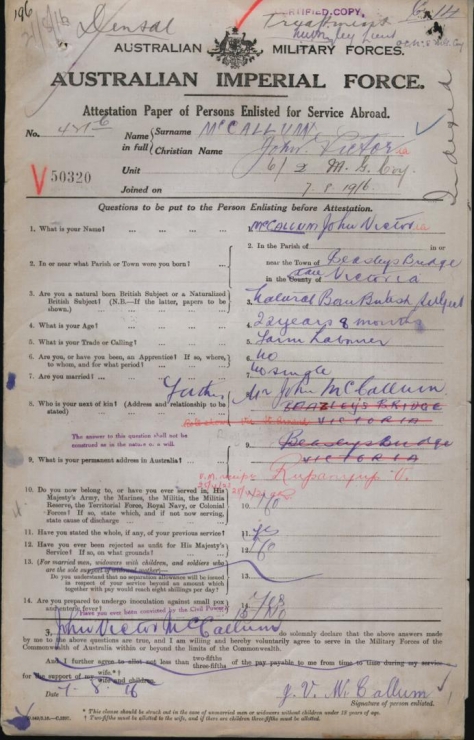 196
CERTIFIED COPY
Dental Treatment
21/8/16
AUSTRALIAN MILITARY FORCES.
AUSTRALIAN IMPERIAL FORCE.
Attestation Paper of Persons Enlisted for Service Abroad.
No. Name in full Surname McCALLUM
Christian Name John Victor
V 50320 Unit 6/2 M. G. Coy.
Joined on 7.8.1916
Indexed
Questions to be put to the Person Enlisting before Attestation.
1. What is your Name? ... 1. McCALLUM John Victor
2. In or near what Parish or Town were you born? ... 2. In the Parish of in or
near the Town of Beasleys Bridge
in the County of Victoria
3. Are you a natural born British Subject or a Naturalized
British Subject? (N.B.—If the latter, papers to be
shown.) ... 3. Natural Born British Subject
4. What is your Age? ... 4. 22 years 8 months
5. What is your Trade or Calling? ... 5. Farm Labourer
6. Are you, or have you been, an Apprentice? If so, where,
to whom, and for what period? ... 6. No
7. Are you married? ... 7. No single
8. Who is your next of kin? (Address and relationship to be
stated) Father 8. Mr John McCallum
BEAZLEY'S BRIDGE
VICTORIA
The answer to this question shall not be
construed as in the nature of a will.
9. What is your permanent address in Australia? ... 9. Beasleys Bridge
VICTORIA
Rupanyup V.
10. Do you now belong to, or have you ever served in, His
Majesty's Army, the Marines, the Militia, the Militia
Reserve, the Territorial Force, Royal Navy, or Colonial
Forces? If so, state which, and if not now serving,
state cause of discharge ... 10. No
11. Have you stated the whole, if any, of your previous service? 11. Yes
12. Have you ever been rejected as unfit for His Majesty's
Service? If so, on what grounds? ... 12. No
13. (For married men, widowers with children, and soldiers who
are the sole support of widowed mother)
Do you understand that no separation allowance will be issued
in respect of your service beyond an amount which
together with pay would reach eight shillings per day? 13.
14. Are you prepared to undergo inoculation against small pox
and enteric fever? ... 14. Yes
Have you ever been convicted by the Civil Power? 15. No
I, John Victor McCallum do solemnly declare that the above answers made
by me to the above questions are true, and I am willing and hereby voluntarily agree to serve in the Military Forces of the
Commonwealth of Australia within or beyond the limits of the Commonwealth.
And I further agree to allot not less than two-fifths three-fifths of the pay payable to me from time to time during my service
for the support of my wife.*†
wife and children.
Date 7.8.16 J. V. McCallum
Signature of person enlisted.
* This clause should be struck out in the case of unmarried men or widowers without children under 18 years of age.
† Two-fifths must be allotted to the wife, and if there are children three-fifths must be allotted.